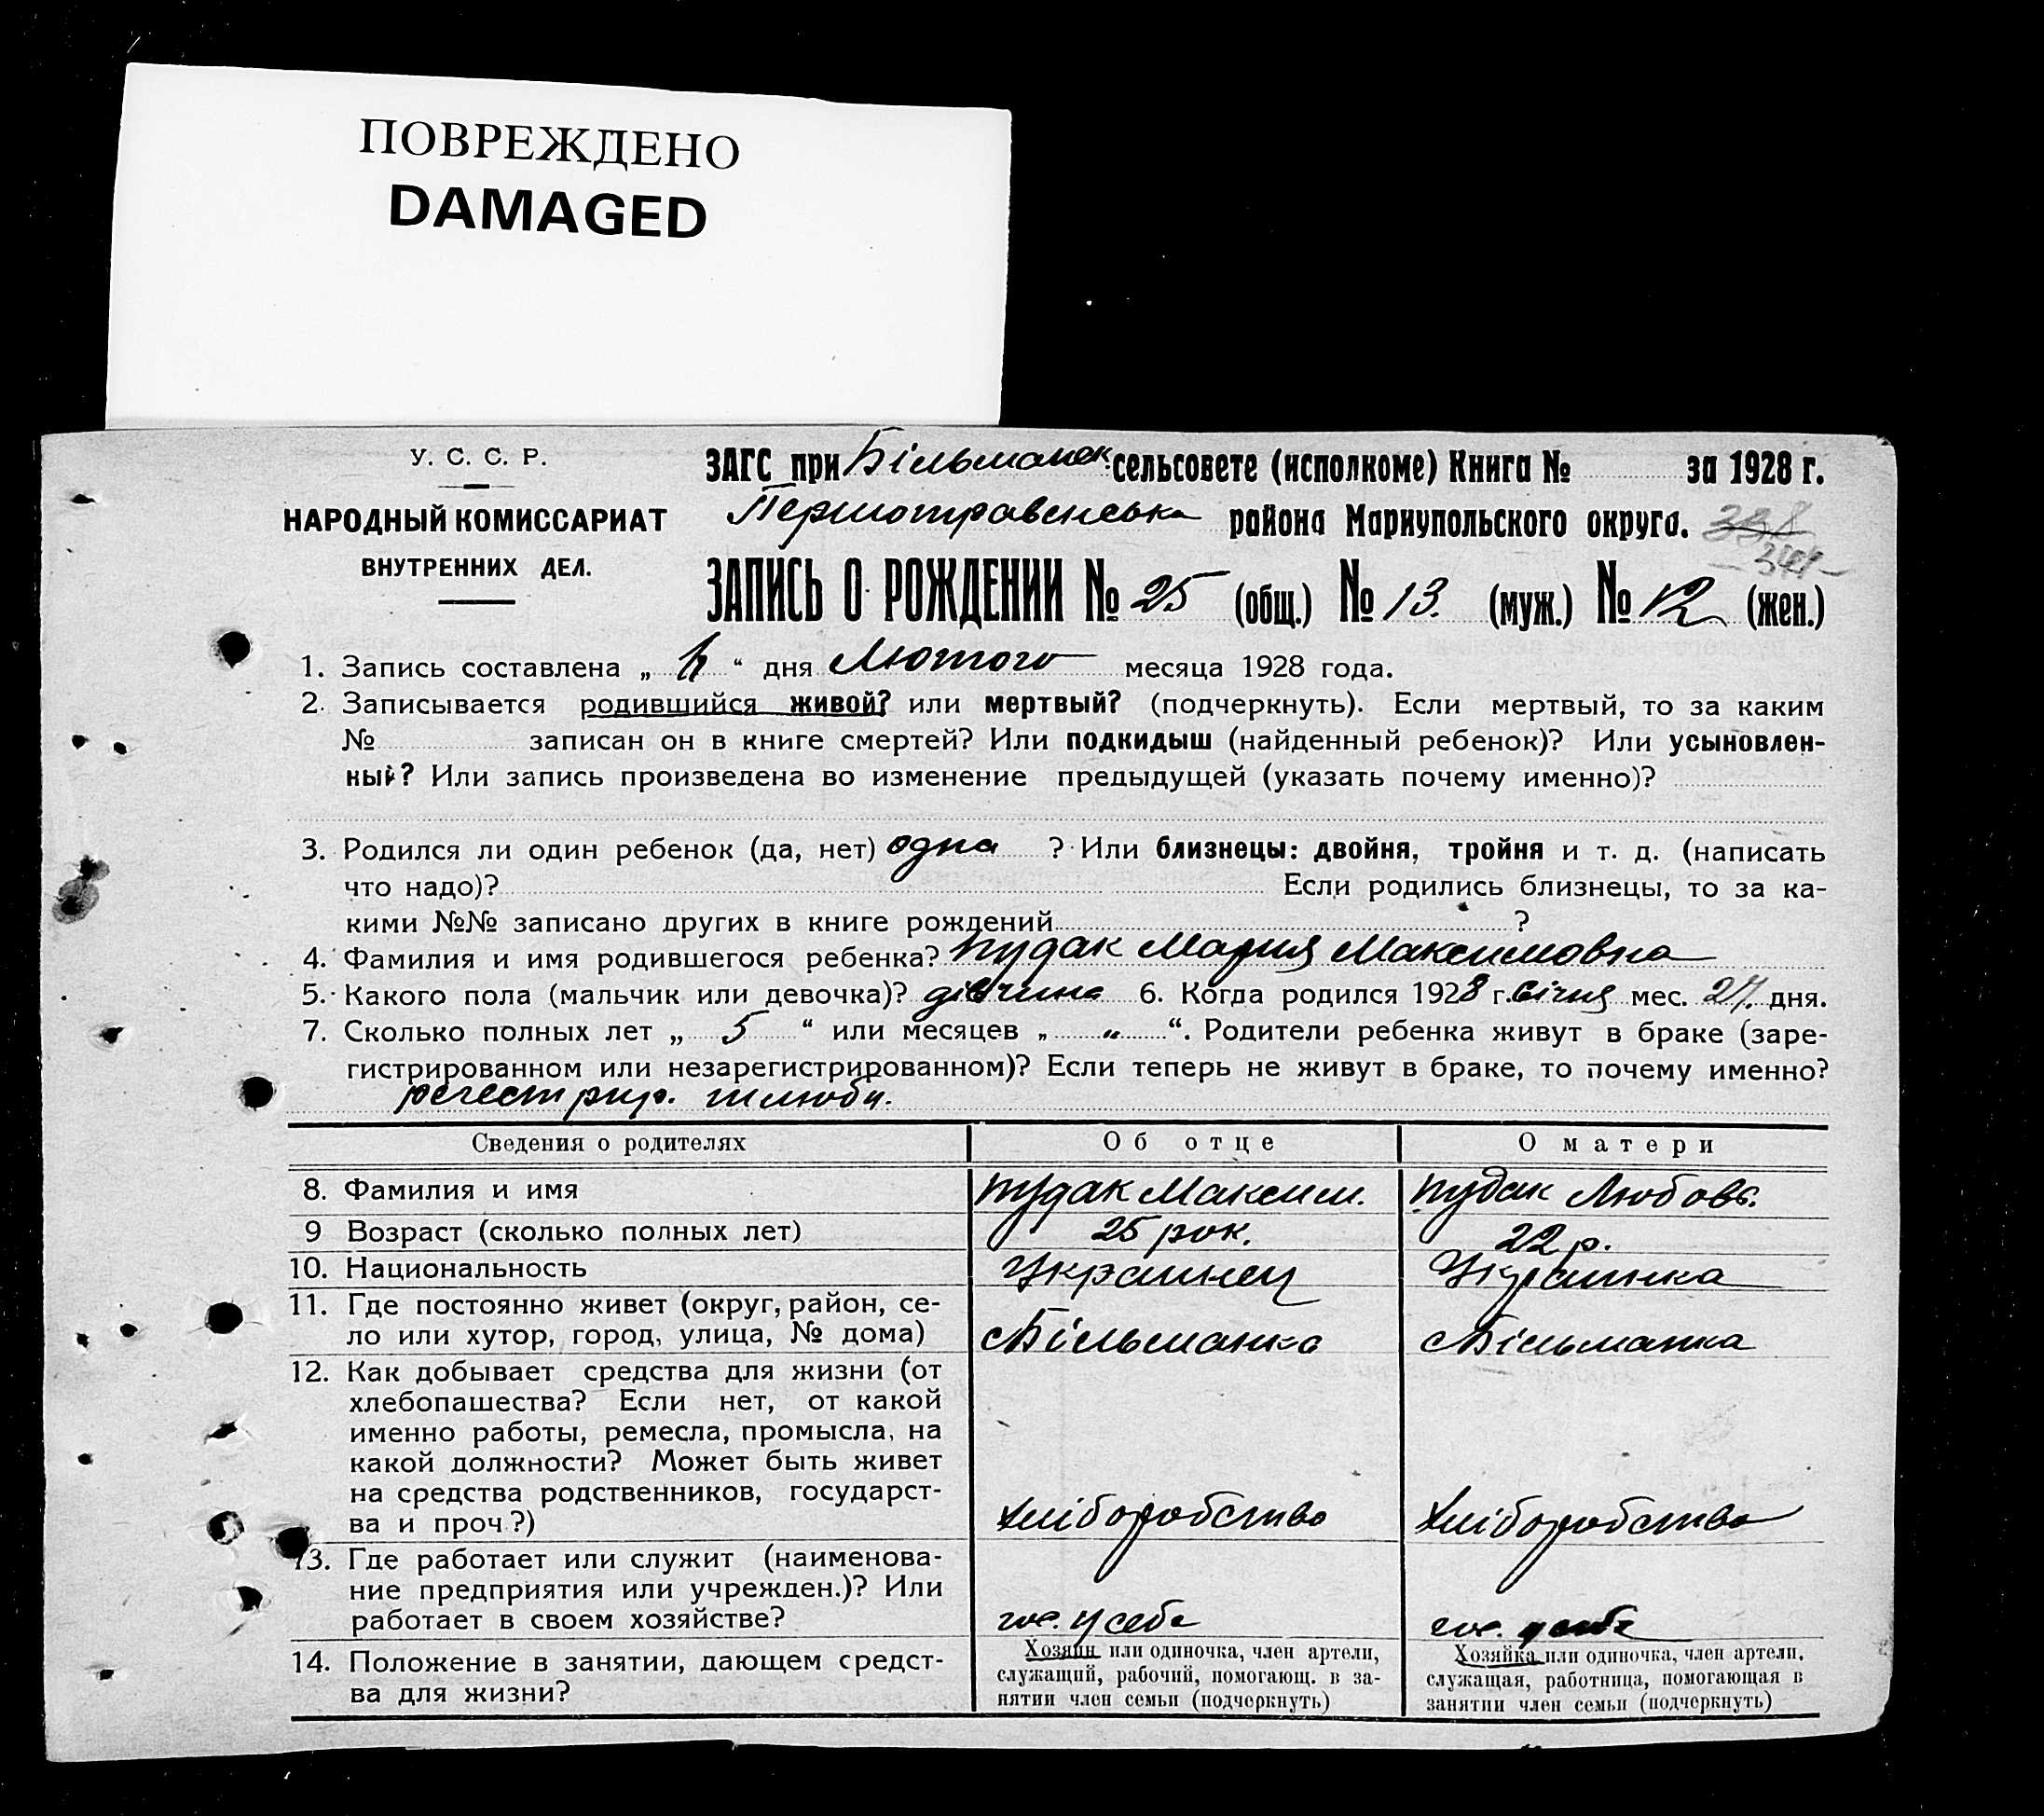 ПОВРЕЖДЕНО
DAMAGED
У. С. С. Р.
НАРОДНЫЙ КОМИССАРИАТ
ВНУТРЕННИХ ДЕЛ.
ЗАГС при Більманск. сельсовете (исполкоме) Книга № за 1928 г.
района Мариупольского округа. 338
ЗАПИСЬ О РОЖДЕНИИ № 25 (общ.) № 13. (муж.) № 12 (жен.)
1. Запись составлена „ “ дня Лютого месяца 1928 года.
2. Записывается родившийся живой? или мертвый? (подчеркнуть). Если мертвый, то за каким
№ записан он в книге смертей? Или подкидыш (найденный ребенок)? Или усыновлен-
ный? Или запись произведена во изменение предыдущей (указать почему именно)?
3. Родился ли один ребенок (да, нет) одна ? Или близнецы: двойня, тройня и т. д. (написать
что надо)? Если родились близнецы, то за ка-
кими №№ записано других в книге рождений ?
4. Фамилия и имя родившегося ребенка? Пудак Мария Максимовна
5. Какого пола (мальчик или девочка)? дівчина 6. Когда родился 1928 г. січня мес. 27. дня.
7. Сколько полных лет „ 5 “ или месяцев „ „ “. Родители ребенка живут в браке (заре-
гистрированном или незарегистрированном)? Если теперь не живут в браке, то почему именно?
регестрир. шлюби.
Сведения о родителях Об отце О матери
8. Фамилия и имя Пудак Максим. Пудак Любовь.
9 Возраст (сколько полных лет) 25 рок. 22 р.
10. Национальность Украинец Украинка
11. Где постоянно живет (округ, район, се-
ло или хутор, город, улица, № дома) с Більманка с Більманка
12. Как добывает средства для жизни (от
хлебопашества? Если нет, от какой
именно работы, ремесла, промысла, на
какой должности? Может быть живет
на средства родственников, государст-
ва и проч.?) хліборобство хліборобство
13. Где работает или служит (наименова-
ние предприятия или учрежден.)? Или
работает в своем хозяйстве? у себе у себе
14. Положение в занятии, дающем средст-
ва для жизни?
Хозяин или одиночка, член артели,
служащий, рабочий, помогающ. в за-
нятии член семьи (подчеркнуть)
Хозяйка или одиночка, член артели,
служащая, работница, помогающая в
занятии член семьи (подчеркнуть)